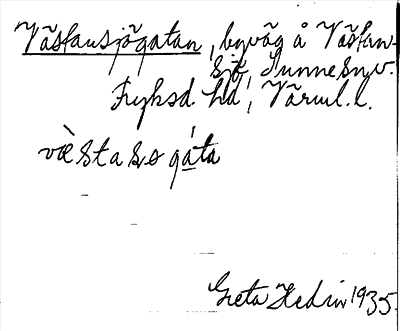 Västansjögatan, byväg å Västan-
sjö, Sunne sn, v.
Fryksd. hd, Värml. l.
væ̀stasøgáta
Greta Hedin 1935.